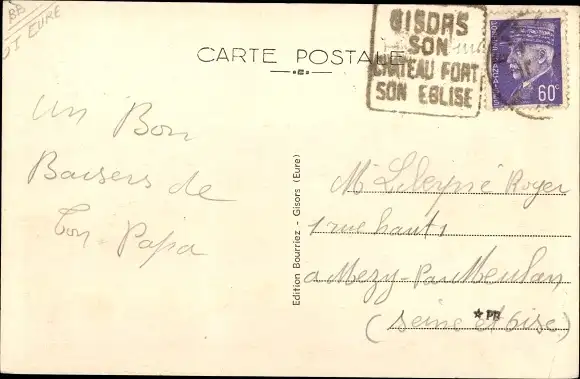 BB
DT EURE
GISORS
SON
CHATEAU FORT
SON EGLISE
60c
CARTE POSTALE
un Bon
Baisers de
ton Papa
Edition Bourriez - Gisors (Eure)
Mr Roger
1 rue hauts
a Mezy-Par Meulan
(Seine et Oise)
PB